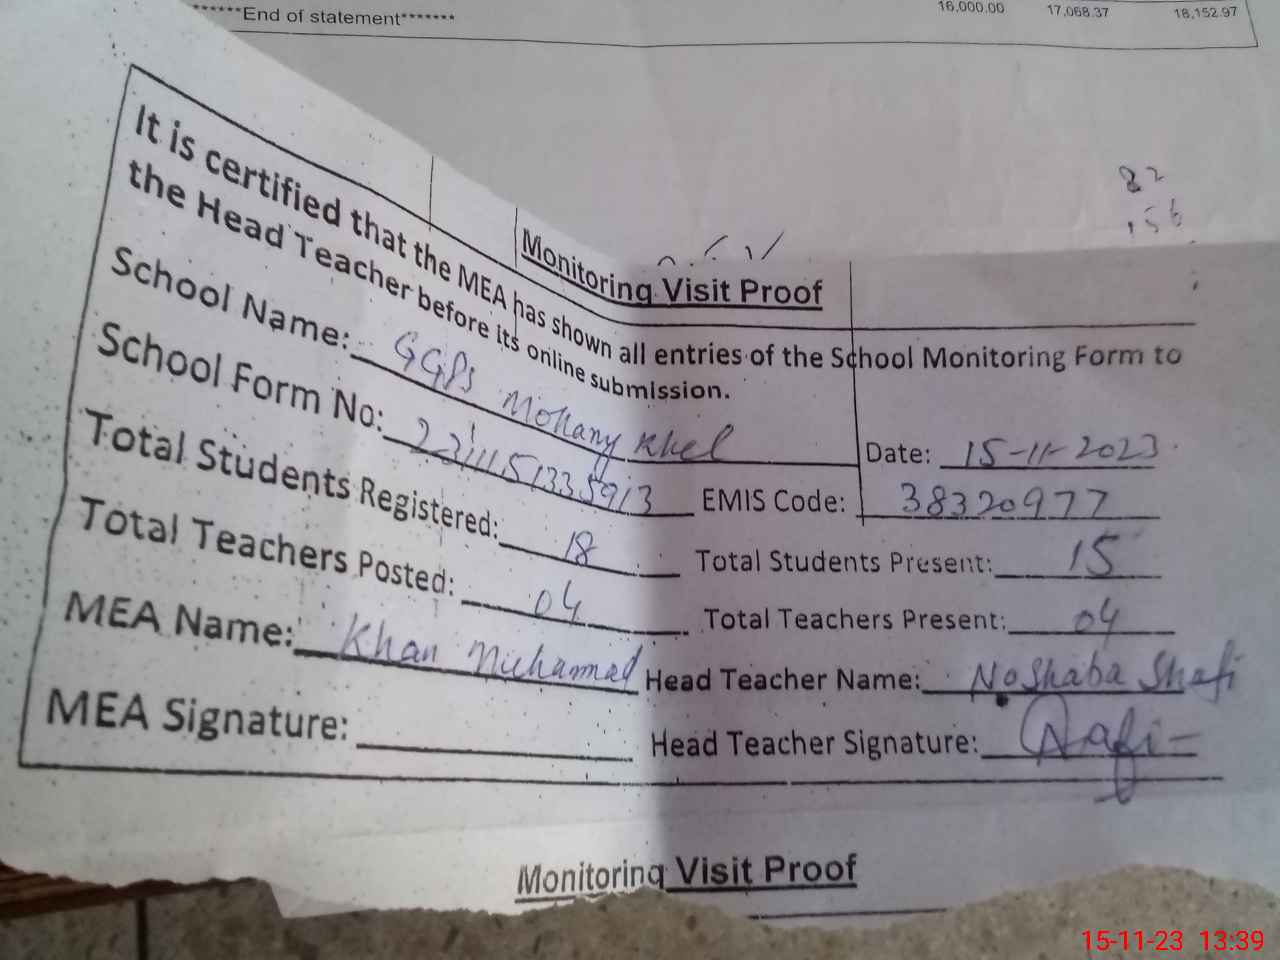 *******End of statement*******
16,000.00 17,068.37 18,152.97
82
156
Monitoring Visit Proof
It is certified that the MEA has shown all entries of the School Monitoring Form to
the Head Teacher before its online submission.
School Name: GGPS Mohany Khel Date: 15-11-2023
School Form No: 2311151335913 EMIS Code: 38320977
Total Students Registered: 18 Total Students Present: 15
Total Teachers Posted: 04 Total Teachers Present: 04
MEA Name: Khan Muhammad Head Teacher Name: Noshaba Shafi
MEA Signature: Head Teacher Signature: Shafi
Monitoring Visit Proof
15-11-23 13:39